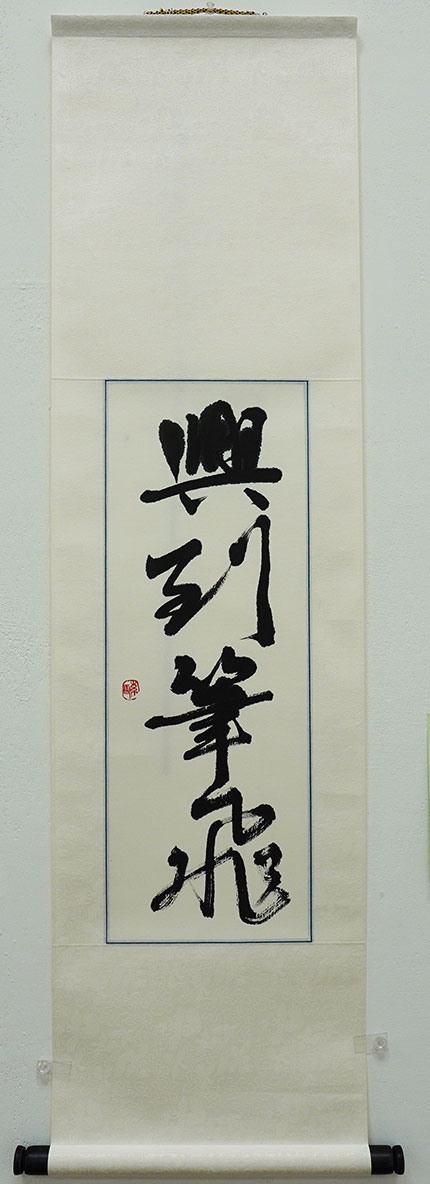 興到筆飛